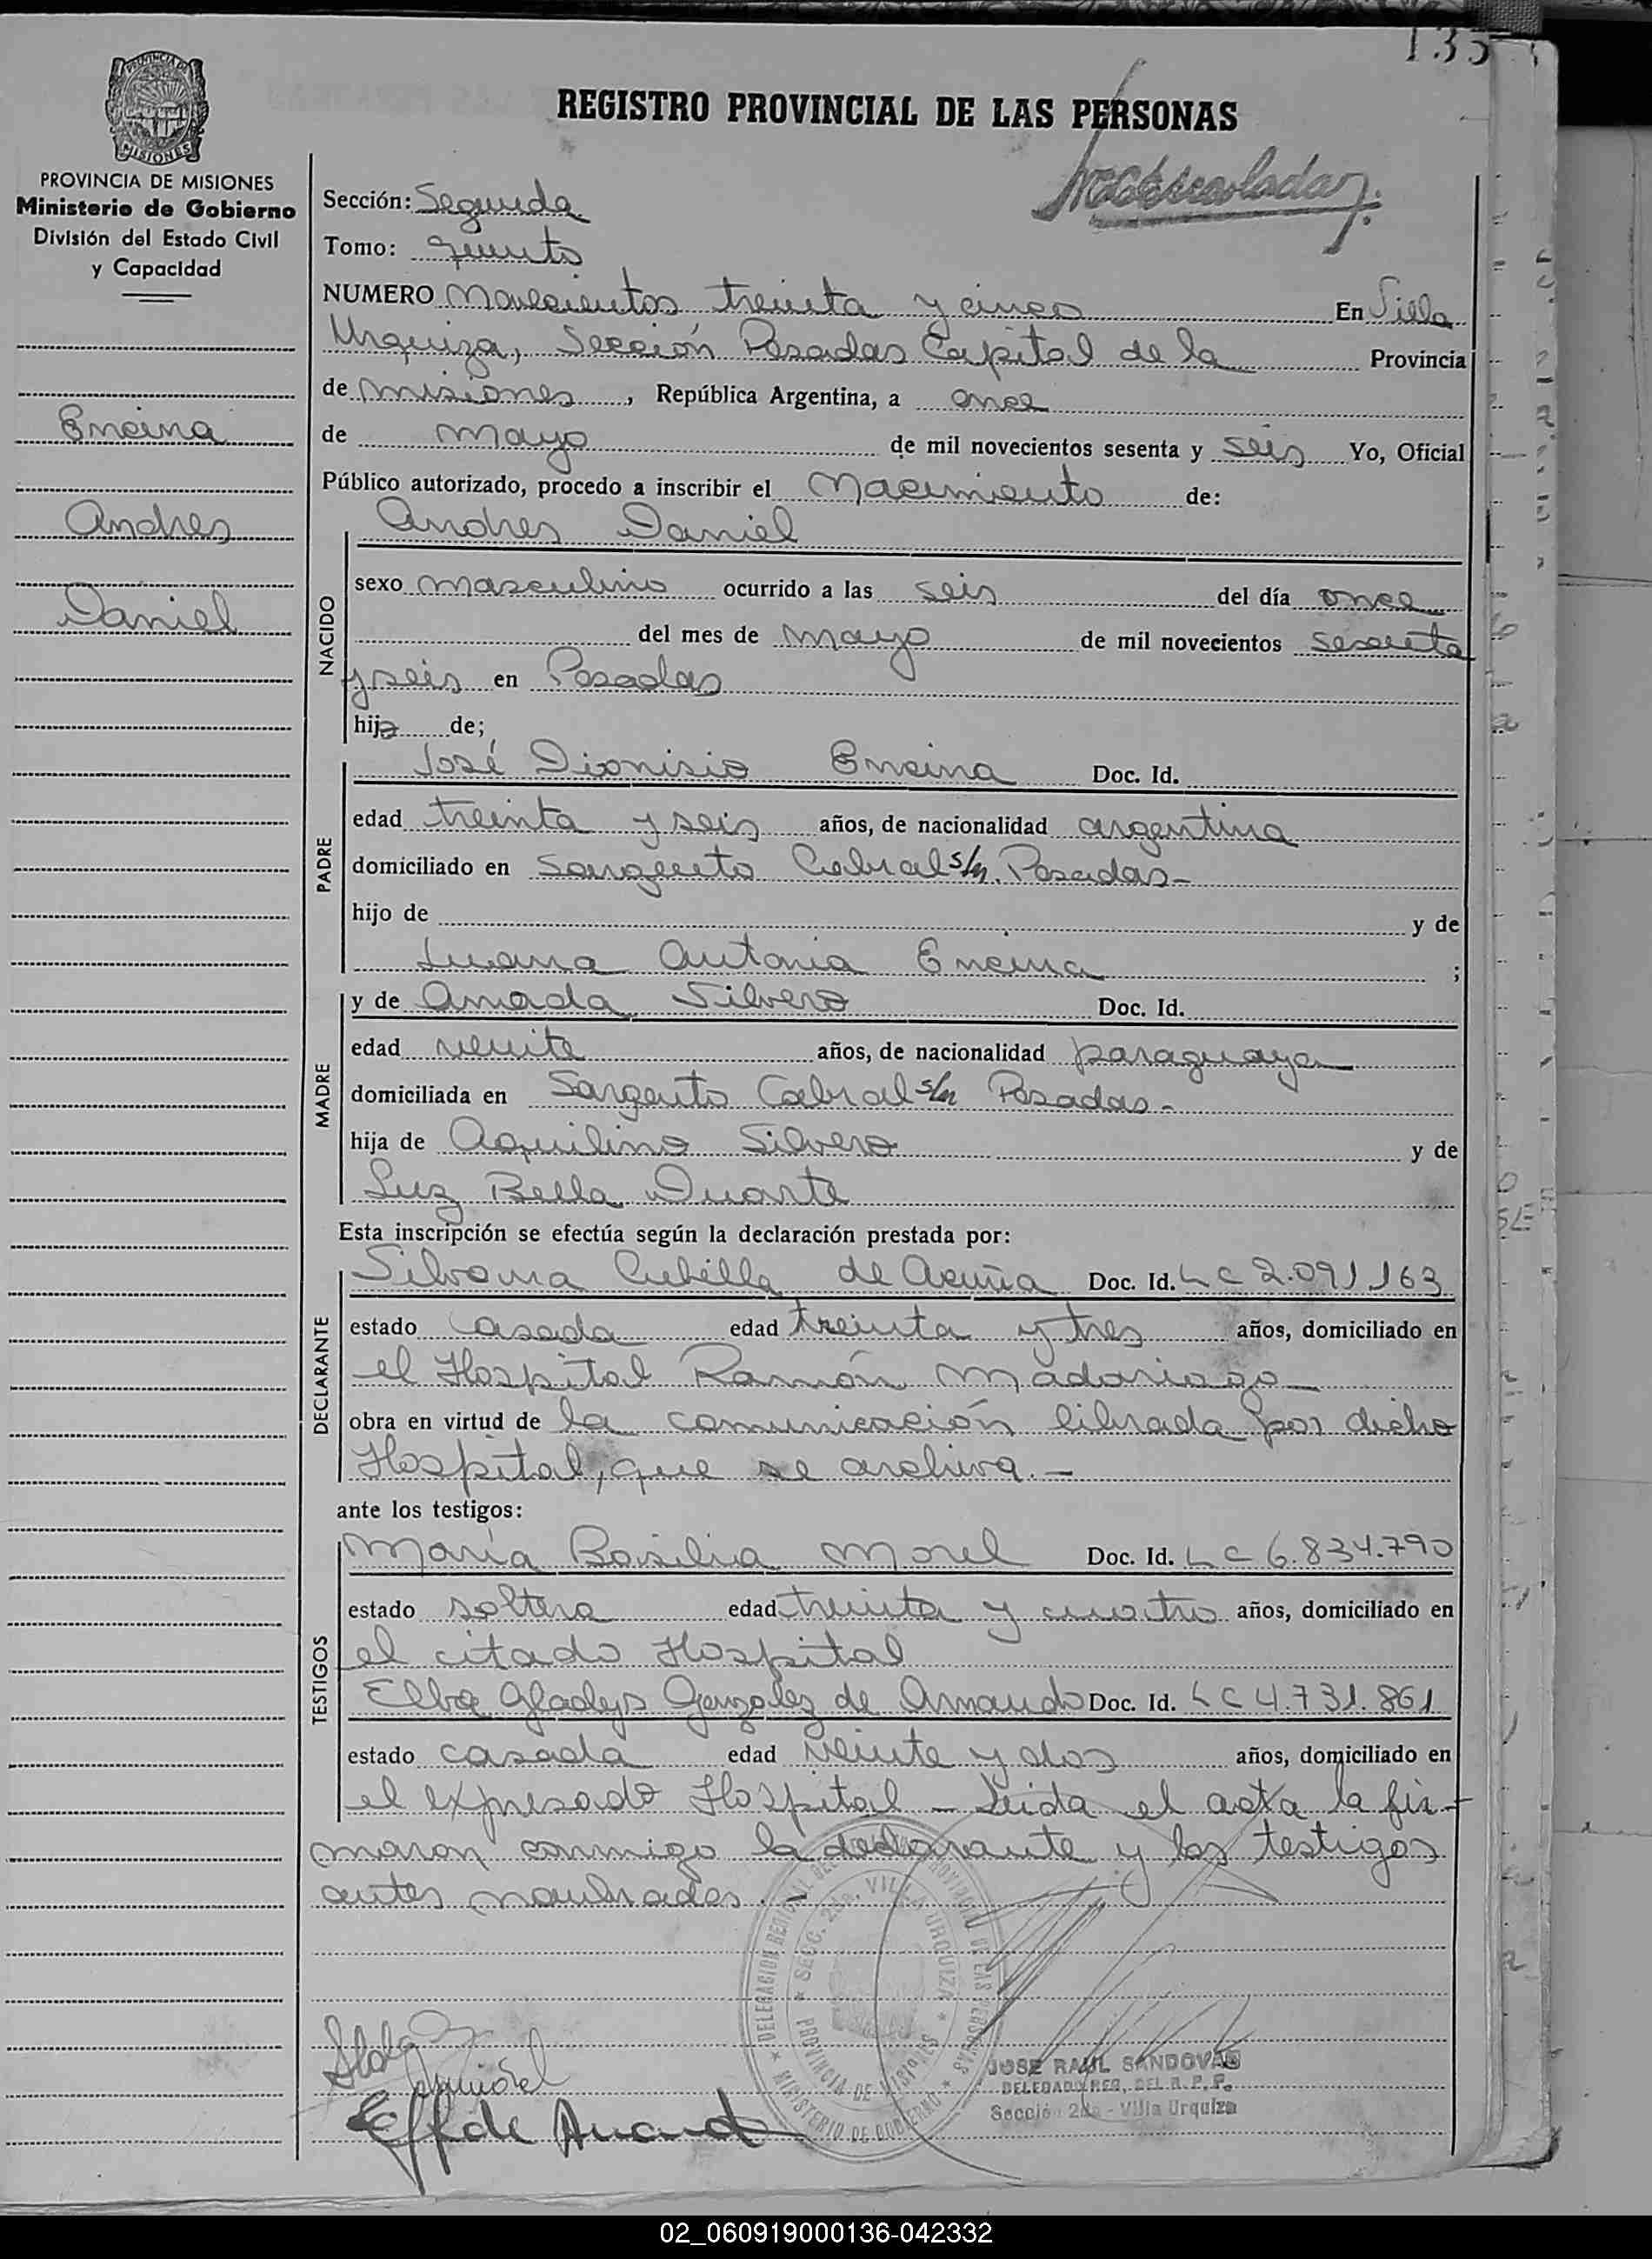 135
REGISTRO PROVINCIAL DE LAS PERSONAS
PROVINCIA DE MISIONES
Ministerio de Gobierno
División del Estado Civil
y Capacidad
Encina
Andres
Daniel
Sección: Segunda
Tomo: quinto
NUMERO Novecientos treinta y cinco En Villa
Urquiza, Sección Posadas Capital de la Provincia
de Misiones, República Argentina, a once
de mayo de mil novecientos sesenta y seis Yo, Oficial
Público autorizado, procedo a inscribir el Nacimiento de:
NACIDO
Andres Daniel
sexo masculino ocurrido a las seis del día once
del mes de mayo de mil novecientos sesenta
y seis en Posadas
hijo de;
PADRE
José Dionisio Encina Doc. Id.
edad treinta y seis años, de nacionalidad argentina
domiciliado en Sargento Cabral s/n. Posadas-
hijo de y de
Juana Antonia Encina ;
MADRE
y de Amada Silvero Doc. Id.
edad veinte años, de nacionalidad paraguaya
domiciliada en Sargento Cabral s/n Posadas-
hija de Aquilino Silvero y de
Luz Bella Duarte
Esta inscripción se efectúa según la declaración prestada por:
DECLARANTE
Silvana Cubilla de Acuña Doc. Id. LC 2.091.163
estado casada edad treinta y tres años, domiciliado en
el Hospital Ramón Madariaga
obra en virtud de la comunicación librada por dicho
Hospital, que se archiva.-
ante los testigos:
TESTIGOS
María Basilia Morel Doc. Id. LC 6.834.790
estado soltera edad treinta y cuatro años, domiciliado en
el citado Hospital
Elba Gladys Gonzalez de Armando Doc. Id. LC 4.731.861
estado casada edad veinte y dos años, domiciliado en
el expresado Hospital - Leida el acta la fir-
maron conmigo la declarante y los testigos
antes nombrados.-
SECC. 2da. VILLA URQUIZA
PROVINCIA DE MISIONES
MINISTERIO DE GOBIERNO
JOSE RAUL SANDOVAL
DELEGADO REG. DEL R. P. P.
Sección 2da - Villa Urquiza
02_060919000136-042332